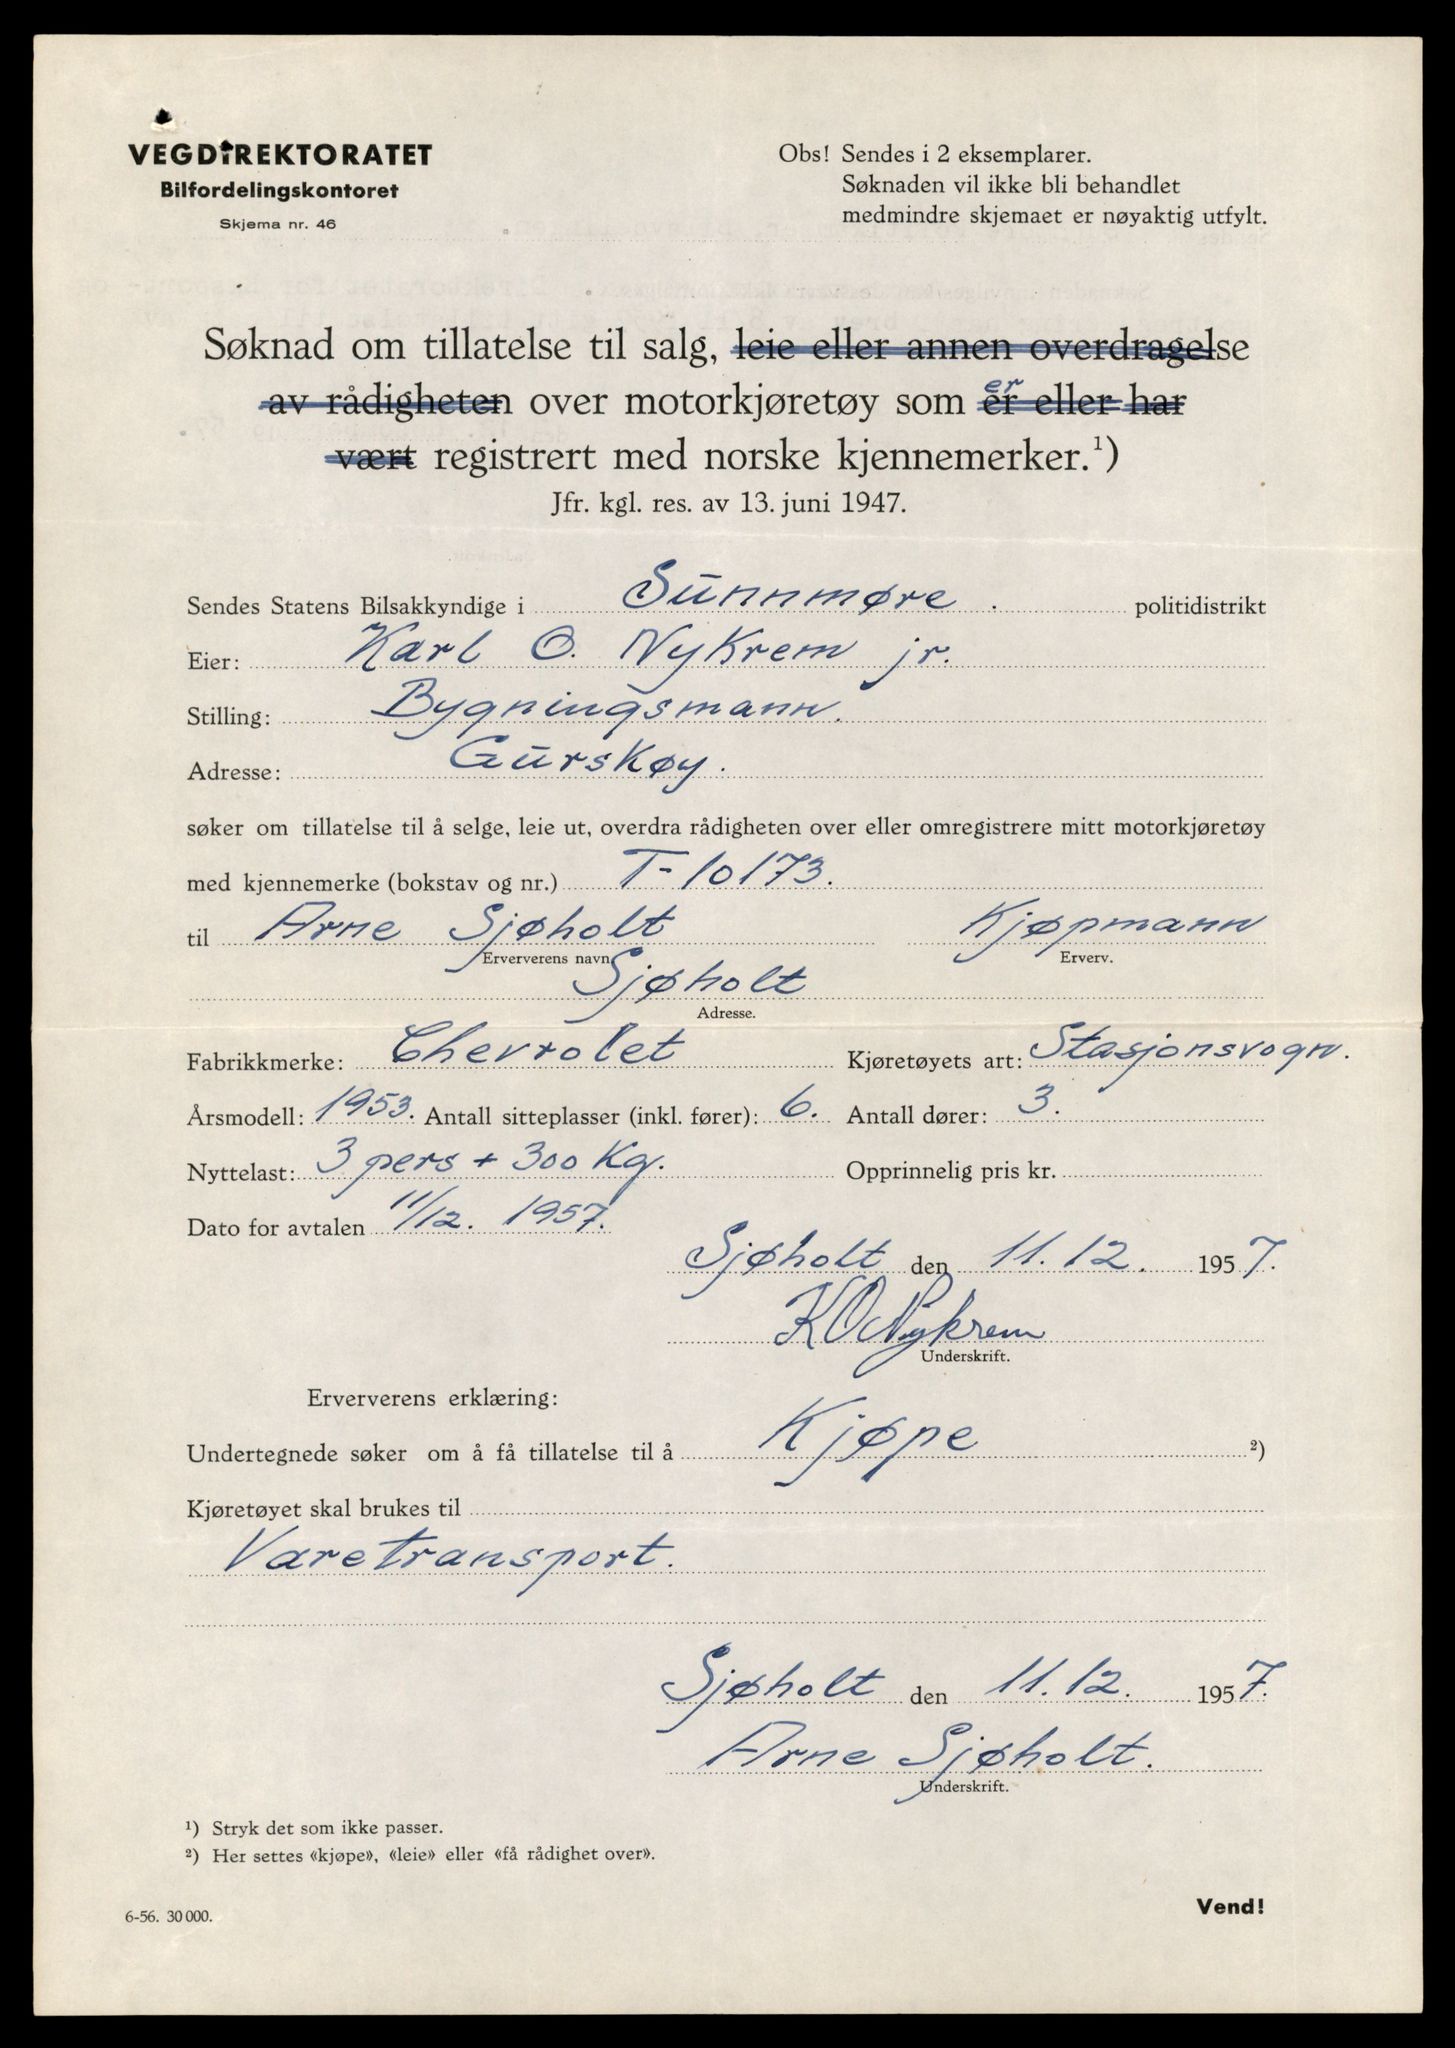 VEGDIREKTORATET
Bilfordelingskontoret
Skjema nr. 46
Obs! Sendes i 2 eksemplarer.
Søknaden vil ikke bli behandlet
medmindre skjemaet er nøyaktig utfylt.
Søknad om tillatelse til salg, leie eller annen overdragelse
av rådigheten over motorkjøretøy som er er eller har
vært registrert med norske kjennemerker.¹)
Jfr. kgl. res. av 13. juni 1947.
Sendes Statens Bilsakkyndige i Sunnmøre. politidistrikt
Eier: Karl O. Nykrem jr.
Stilling: Bygningsmann.
Adresse: Gurskøy.
søker om tillatelse til å selge, leie ut, overdra rådigheten over eller omregistrere mitt motorkjøretøy
med kjennemerke (bokstav og nr.) T-10173.
til Arne Sjøholt Kjøpmann
Erververens navn Erverv.
Sjøholt
Adresse.
Fabrikkmerke: Chevrolet Kjøretøyets art: Stasjonsvogn.
Årsmodell: 1953. Antall sitteplasser (inkl. fører): 6. Antall dører: 3.
Nyttelast: 3 pers + 300 Kg. Opprinnelig pris kr.
Dato for avtalen 11/12. 1957.
Sjøholt den 11.12. 1957.
K O Nykrem
Underskrift.
Erververens erklæring:
Undertegnede søker om å få tillatelse til å Kjøpe ²)
Kjøretøyet skal brukes til
Varetransport.
Sjøholt den 11.12. 1957.
Arne Sjøholt.
Underskrift.
¹) Stryk det som ikke passer.
²) Her settes «kjøpe», «leie» eller «få rådighet over».
6-56. 30 000.
Vend!